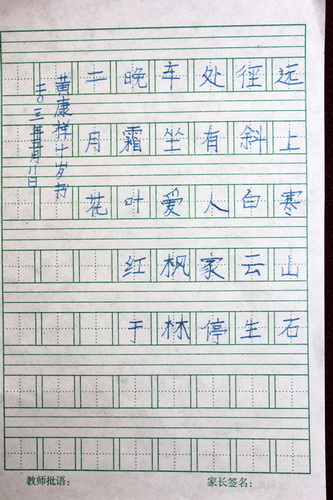 远上寒山石
径斜白云生
处有人家停
车坐爱枫林
晚霜叶红于
二月花
黄康样十岁书
二〇一三年五月廿日
教师批语：
家长签名：